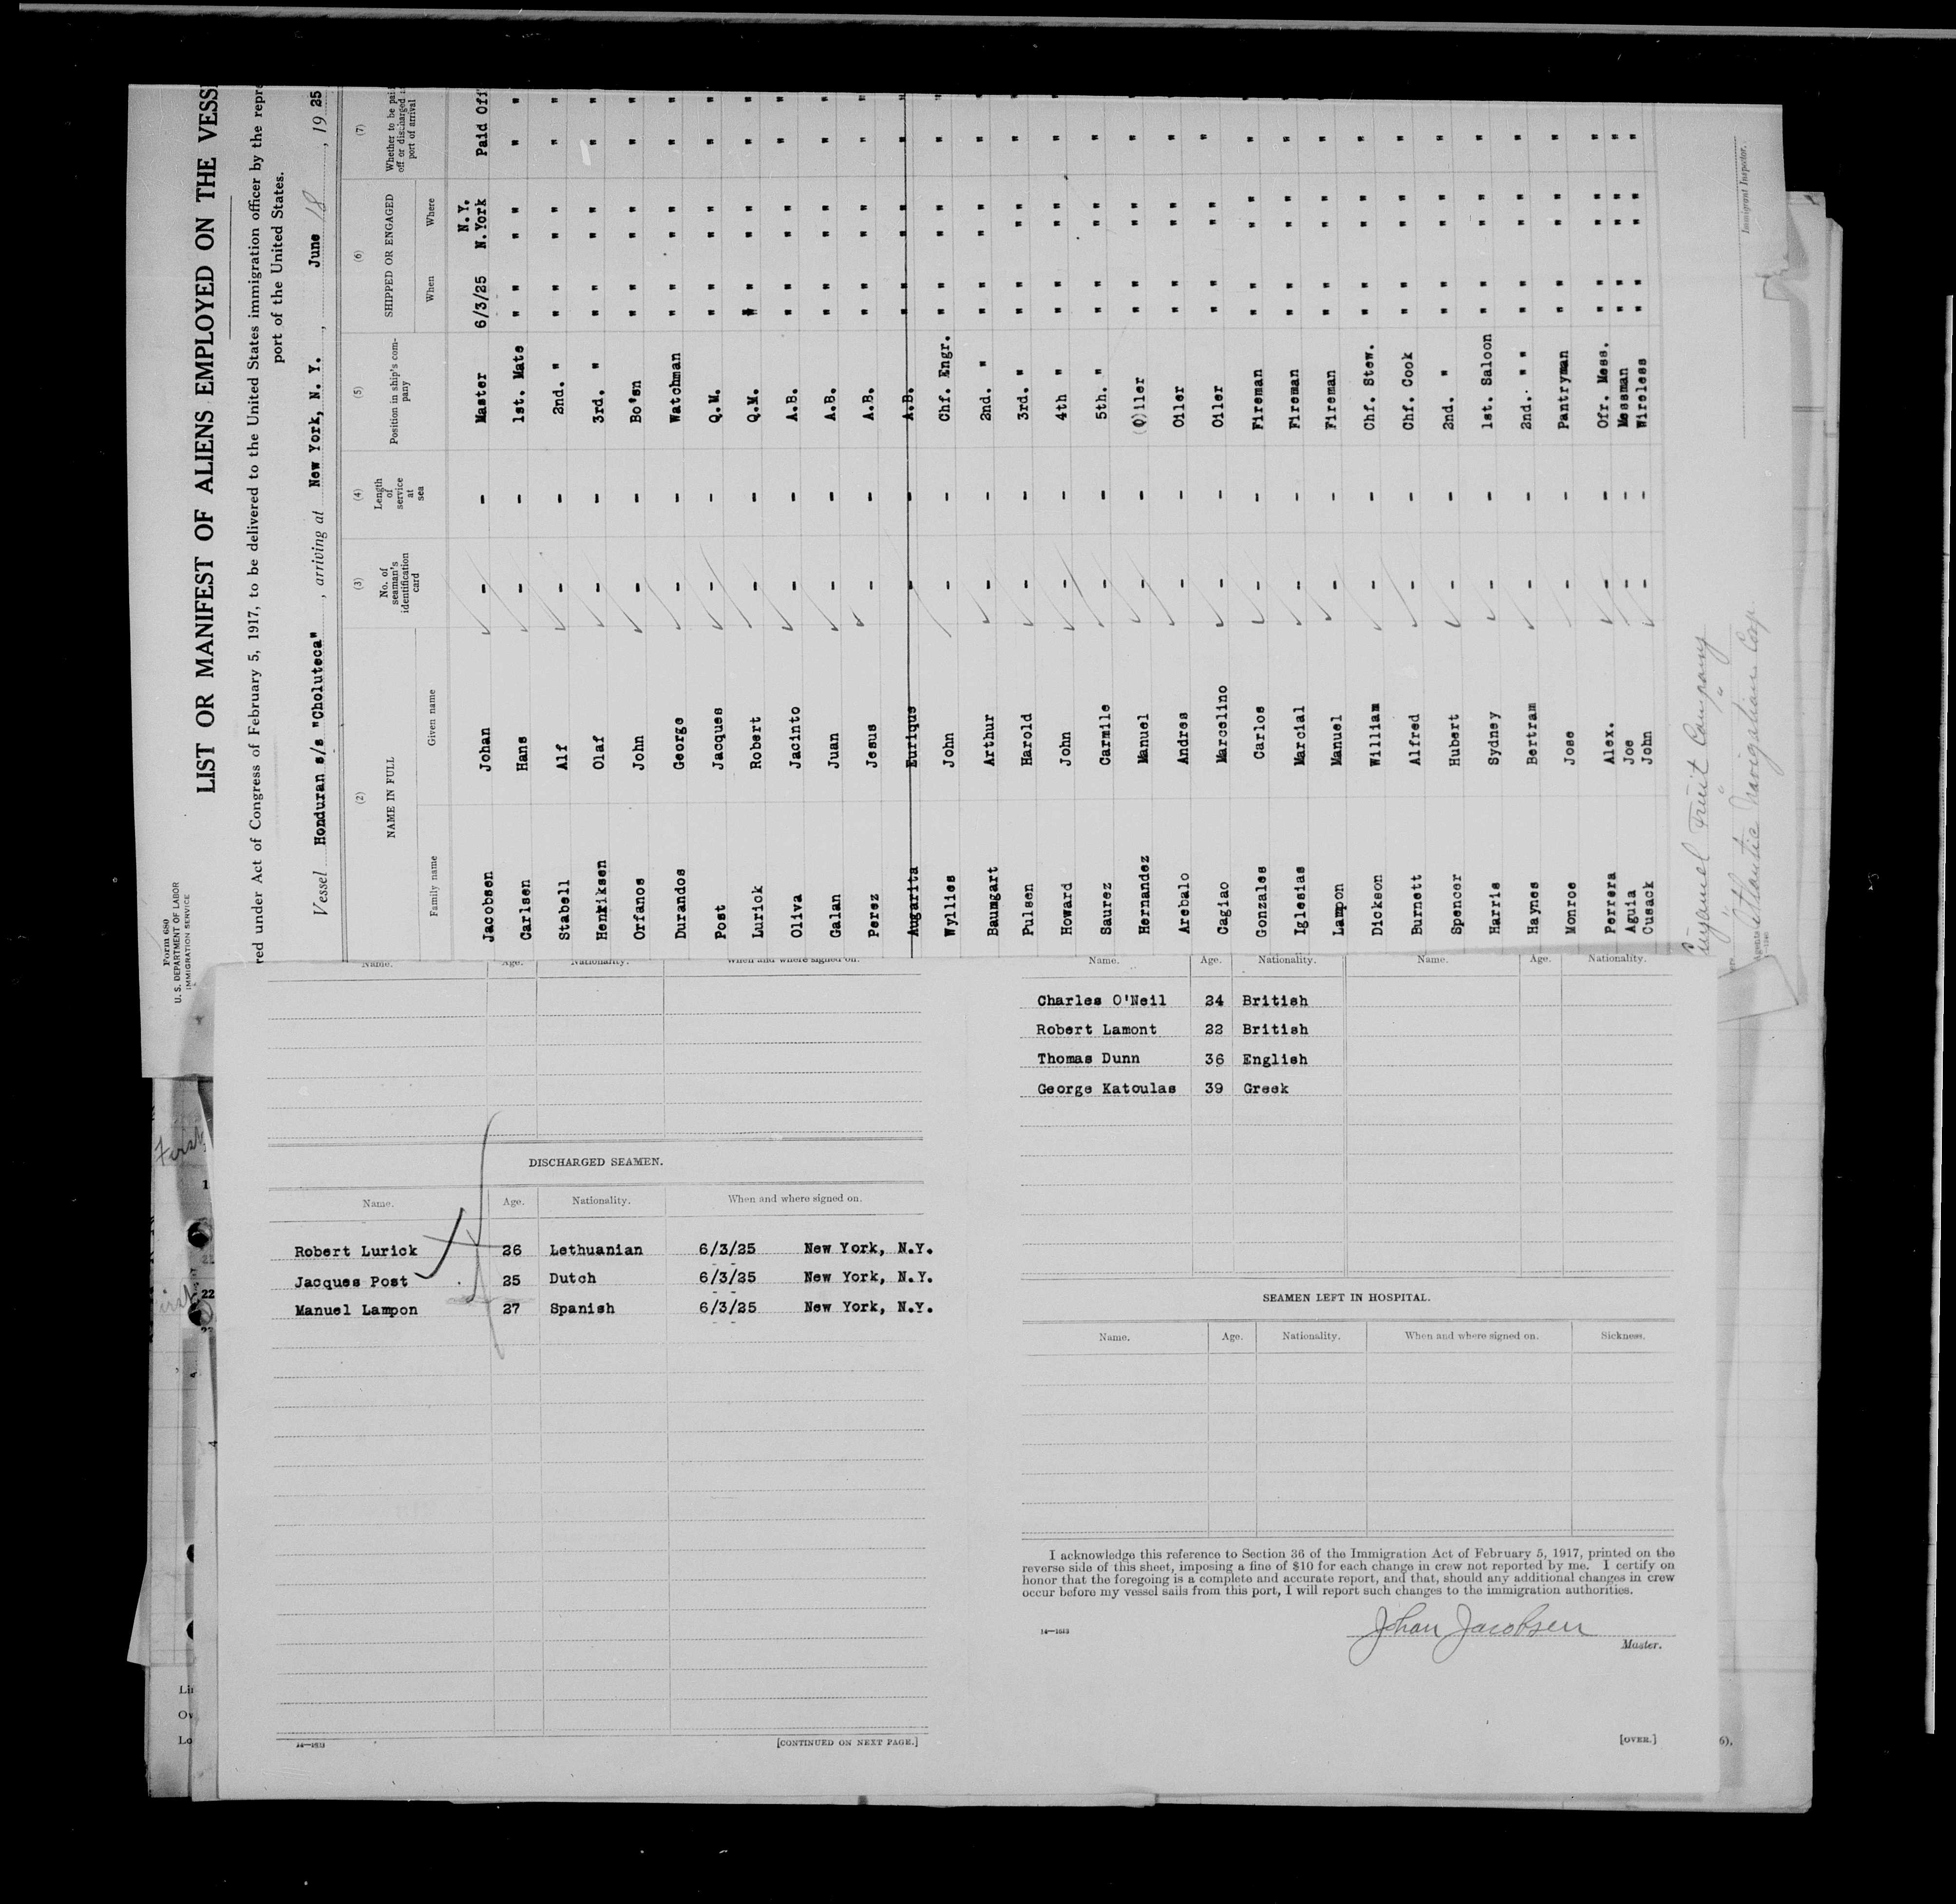 Form 680
U. S. DEPARTMENT OF LABOR
IMMIGRATION SERVICE
LIST OR MANIFEST OF ALIENS EMPLOYED ON THE
red under Act of Congress of February 5, 1917, to be delivered to the United States immigration officer by the
port of the United States.
Vessel Honduran s/s "Choluteca", arriving at New York, N. Y., June 18, 1925
(2) (3) (4) (5) (6) (7)
NAME IN FULL No. of seaman's identification card Length of service at sea Position in ship's company SHIPPED OR ENGAGED Whether to be paid off or discharged port of arrival
Family name Given name When Where
N.Y.
Jacobsen Johan - - Master 6/3/25 N.York Paid Off
Carlsen Hans - - 1st. Mate " " " " " "
Stabell Alf - - 2nd. " " " " " " "
Henriksen Olaf - - 3rd. " " " " " " "
Orfanos John - - Bo'sn " " " " " "
Durandos George - - Watchman " " " " " "
Post Jacques - - Q.M. " " " " " "
Lurick Robert - - Q.M. " " " " " "
Oliva Jacinto - - A.B. " " " " " "
Galan Juan - - A.B. " " " " " "
Perez Jesus - - A.B. " " " " " "
Augarita Eurique - - A.B. " " " " " "
Wyllies John - - Chf. Engr. " " " " " "
Baumgart Arthur - - 2nd. " " " " " " "
Pulsen Harold - - 3rd. " " " " " "
Howard John - - 4th " " " " " "
Saurez Carmile - - 5th. " " " " " "
Hernandez Manuel - - (O)iler " " " " "
Arebalo Andres - - Oiler " " " " "
Cagiao Marcelino - - Oiler " " " " "
Gonzales Carlos - - Fireman " " " " "
Iglesias Marcial - - Fireman " " " " "
Lampon Manuel - - Fireman " " " " "
Dickson William - - Chf. Stew. " " " " "
Burnett Alfred - - Chf. Cook " " " " "
Spencer Hubert - - 2nd. " " " " " "
Harris Sydney - - 1st. Saloon " " " " "
Haynes Bertram - - 2nd. " " " " " " "
Monroe Jose - - Pantryman " " " " "
Perrera Alex. - - Ofr. Mess. " " " " "
Aguia Joe - - Messman " " " " "
Cusack John - - Wireless " " " " "
Fruit Company
Atlantic Navigation Corp.
Immigrant Inspector.
Name. Age. Nationality. When and where signed on.
DISCHARGED SEAMEN.
Name. Age. Nationality. When and where signed on.
Robert Lurick 26 Lethuanian 6/3/25 New York, N.Y.
Jacques Post 25 Dutch 6/3/25 New York, N.Y.
Manuel Lampon 27 Spanish 6/3/25 New York, N.Y.
14—1613 [CONTINUED ON NEXT PAGE.]
Name. Age. Nationality. Name. Age. Nationality.
Charles O'Neil 24 British
Robert Lamont 22 British
Thomas Dunn 36 English
George Katoulas 39 Greek
SEAMEN LEFT IN HOSPITAL.
Name. Age. Nationality. When and where signed on. Sickness.
I acknowledge this reference to Section 36 of the Immigration Act of February 5, 1917, printed on the
reverse side of this sheet, imposing a fine of $10 for each change in crew not reported by me. I certify on
honor that the foregoing is a complete and accurate report, and that, should any additional changes in crew
occur before my vessel sails from this port, I will report such changes to the immigration authorities.
14—1613
Johan Jacobsen
Master.
[OVER.]
First
22